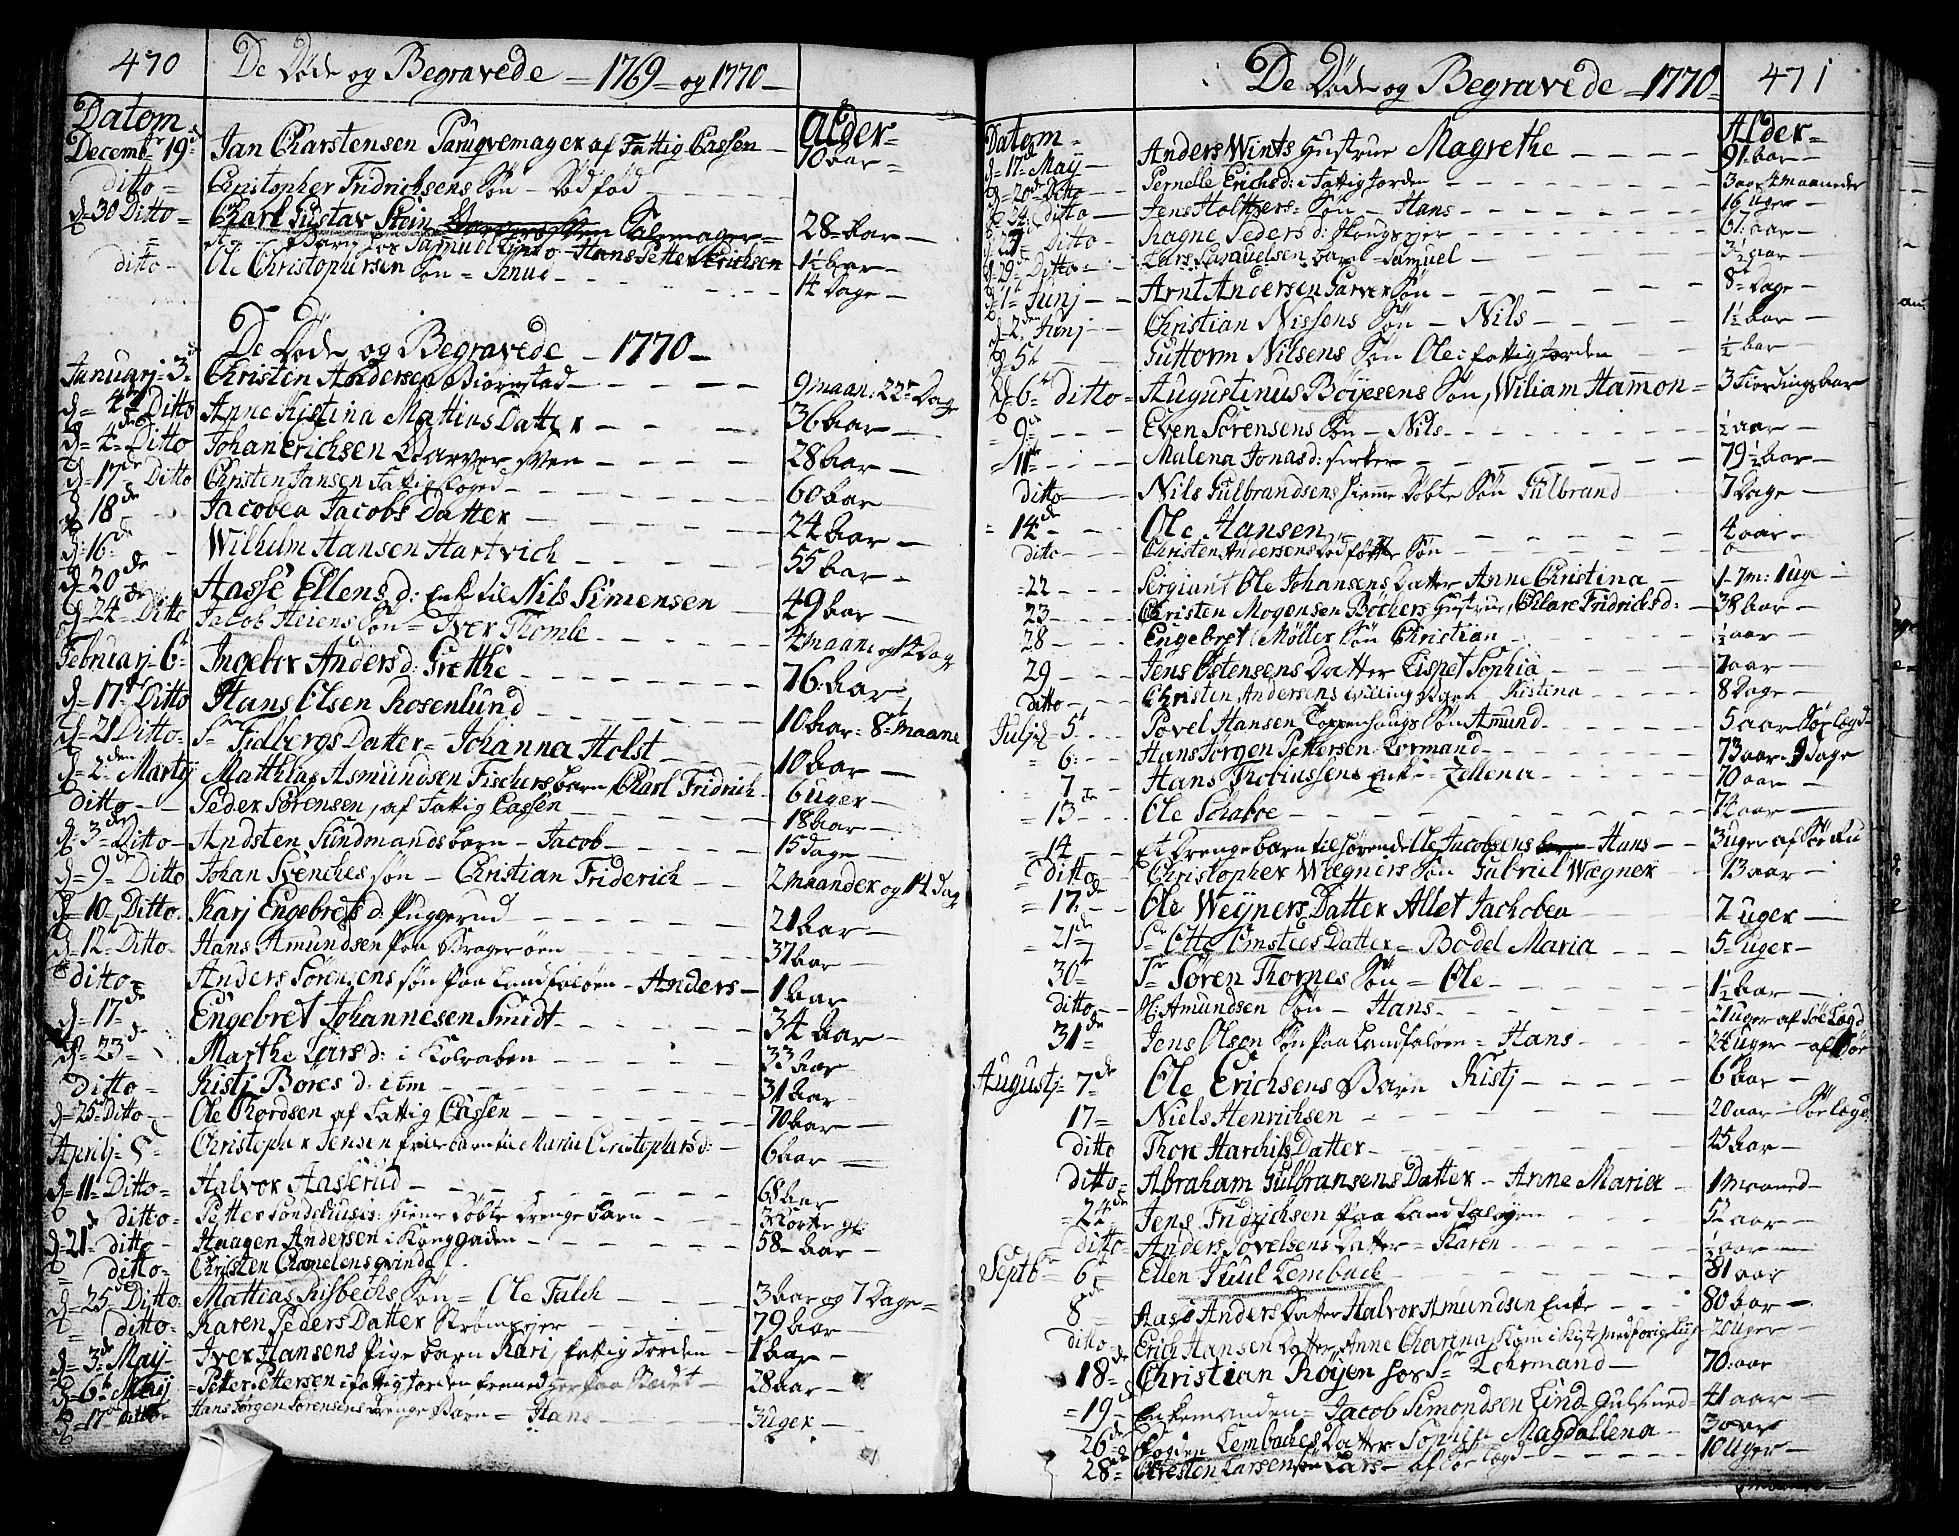 470 De Döde og Begravede = 1769 = og 1770 =
Datom Alder =
Decembr 19d Jan Charstensen Paruqvemager af Fattig Cassen - 70 aar =
ditto = Christopher Fridrichsens Søn - Død fød
d= 30 Ditto = Charl Gustav Stein Salemager = 28 = aar -
= Samuel Hans Petter Erichsen 1½ aar -
ditto - Ole Christophersen Søn = Knud - 14 Dage -
De Döde og Begravede - 1770 -
Januarj = 3d Christen Andersen Biørnstad - 9 maan: 22 Dag
d= 4 Ditto Anne Kistina Mathias Datter - 36 aar -
d= 4 Ditto Johan Erichsen Sven - 28 aar -
d= 17de Ditto Christen Jansen Fattig Foged - 60 aar
d 18de Jacobea Jacobs Datter - 24 aar -
d= 16de Wilhelm Hansen Hartvich 55 aar -
d= 20de Hasse Ellens d: Enke til Nils Simensen 49 aar -
d= 24 Ditto Jacob Heiens Søn = Iver Tomle - 4 maane og 14 Dag
Februarj 6 Ingebor Anders d: Grethe 76: aar
d= 17 Ditto Hans Olsen Rosenlund 10 aar = 8 maane
d= 21 Ditto = Sr Fidbergs Datter = Johanna Holst 10 aar -
d= 2den Martij Matthias Asmundsen Fischers barn, Charl Fridrich 6 uger -
ditto - Peder Sørensen, af Fattig Cassen - 18 aar -
d= 3de Ditto - Andsten Sundmands barn - Jacob - 15 dage -
d= 9de Ditto Johan Svenches søn - Christian Friderich - - 2 maander og 14 dag
d= 10 Ditto Karj Engebrets d: Puggerud - 21 aar -
d= 12 Ditto Hans Amundsen paa Bragerøen 37 aar
ditto = Anders Sörensens søn paa Landfaløen - Anders - 1 aar
d= 17de Engebret Johannesen Smidt - 34 aar
d= 23d Marthe Lars d: i Kolraben - 33 aar
ditto = Kistj Börs d: 31 aar
d= 25 Ditto - Ole Thordsen af Fattig Cassen - 70 aar -
Aprilj = 5 Christopher Jensen barn til Maria Christophers d: - 6 aar
d= 11 Ditto = Halvor Aaserud - 68 aar
ditto = Petter hieme Döbte Drenge Barn -
d= 21de ditto = Haagen Andersen i Konggaden - 58 = aar -
ditto = Christen qvinde
d= 25 Ditto Mattias Risbechs Søn = Ole Falch - 3 aar og 7 Dage =
ditto = Karen Peders Datter Strømpejer 79 aar
d= 3de May - Iver Hansens Pige barn Kari, fattig Jorden 1 aar -
d= 6te May = Petter Pettersen i fattig jorden fremed paa Stædet - 28 aar -
d= 17 ditto = Hans Jørgen Sørensens Drenge Barn = Hans - 3 uger -
De Döde og Begravede = 1770 = 471
Datom = Alder =
d= 17de May Anders Wints Hustrue Magrethe - 91 aar -
d= 20de Ditto - Pernelle Erichs d: i Fattig Jorden 3 aar 4 maaneder
d= 24 ditto - Jens Holtzers = Søn - Hans - 16 uger -
d= 27 Ditto - Ragne Peders d: 67: aar -
d= 29 Ditto - Lars Samuelsen barn - Samuel - 3½ aar -
d= 1 Junj - - Arnt Andersen Garver Søn - 8 Dage -
d= 2den Junj - Christian Nissens Søn - Nils - 1½ aar -
d= 5t Guttorm Nilsens Søn Ole i fattig Jorden ½ aar -
d= 6t ditto = Augustinus Böyesens Søn, William Hamnon = 3 Fierdings aar
9de Even Sörensens Søn - Nils - ½ aar -
11te Malena Jonas d: 79½ aar -
ditto Nils Gulbrandsens hieme Döbte Søn Gulbrand 7 Dage -
= 14de Ole Hansen - 4 aar -
ditto Christen Andersens Död födte Søn 0
= 22 Sergiant Ole Johansens Datter Anne Christina - 1 - 7 m: 1 uge -
23 Christen Mogensen Böchers Hustrue, Clare Fridrichs d: - 38 aar -
28 Engebret Møller Søn Christian ½ aar -
29 Jens Östensens Datter Lispet Sophia - 7 aar -
Ditto Christen Andersens tvilling Barn Kistina 8 Dage -
Julj 5t Povel Hansen Søn Amund - 5 aar Sør Lægd
= 6 Hans Jörgen Pettersen Lormand - 73 aar 9 Dage
7 Hans Thobiassens Enke = Zellena - 70 aar -
= 13de Ole Schaboe - 74 aar -
= 14 Et Drenge barn tilhørende Ole Jacobsens Hans - 3 uger af Sør
ditto - Christopher Wægners Søn Gabriel Wægner - 13 aar -
= 17de Ole Weyners Datter Allet Jachobea 7 uger -
= 21de Sr Otte Omsteds Datter = Bodel Maria - 5 uger -
30te Sr Sören Thornes Søn = Ole 1½ aar -
ditto - H: Amundsen Søn - Hans - 21 uger af Sør Lægd
31de Jens Olsen Søn paa Landfaløen = Hans 24 uger - af Sør
Augustj = 7de Ole Erichsens Barn Kistj - 6 aar -
17 = Niels Henrichsen 20 aar - Sør Lægd
ditto Thore Harchils Datter 25 aar -
ditto = Abraham Gulbransens Datter - Anne Maria - 1 maaned -
= 24de Jens Fridrichsen paa Landfaløen 52 aar -
ditto = Anders Povelsens Datter = Karen ½ aar -
Septbr = 6te Ellen Juul Lembach - 81 aar
8de Aase Anders Datter Halvor Amundsen Enke 80 aar -
ditto Erich Hansen Datter, Anne Charina, Kom i Kiste med forige Liig 20 uger -
18de Christian Röyen hos Sr Lohrmand - 70: aar
= 19d Enkemanden = Jacob Simondsen Lind Gulsmed 41 aar -
26de Fogden Lembaches Datter Sophie Magdallena - 3 aar
28de Christen Larsen søn Lars - af Sør Lægd 10 uger -